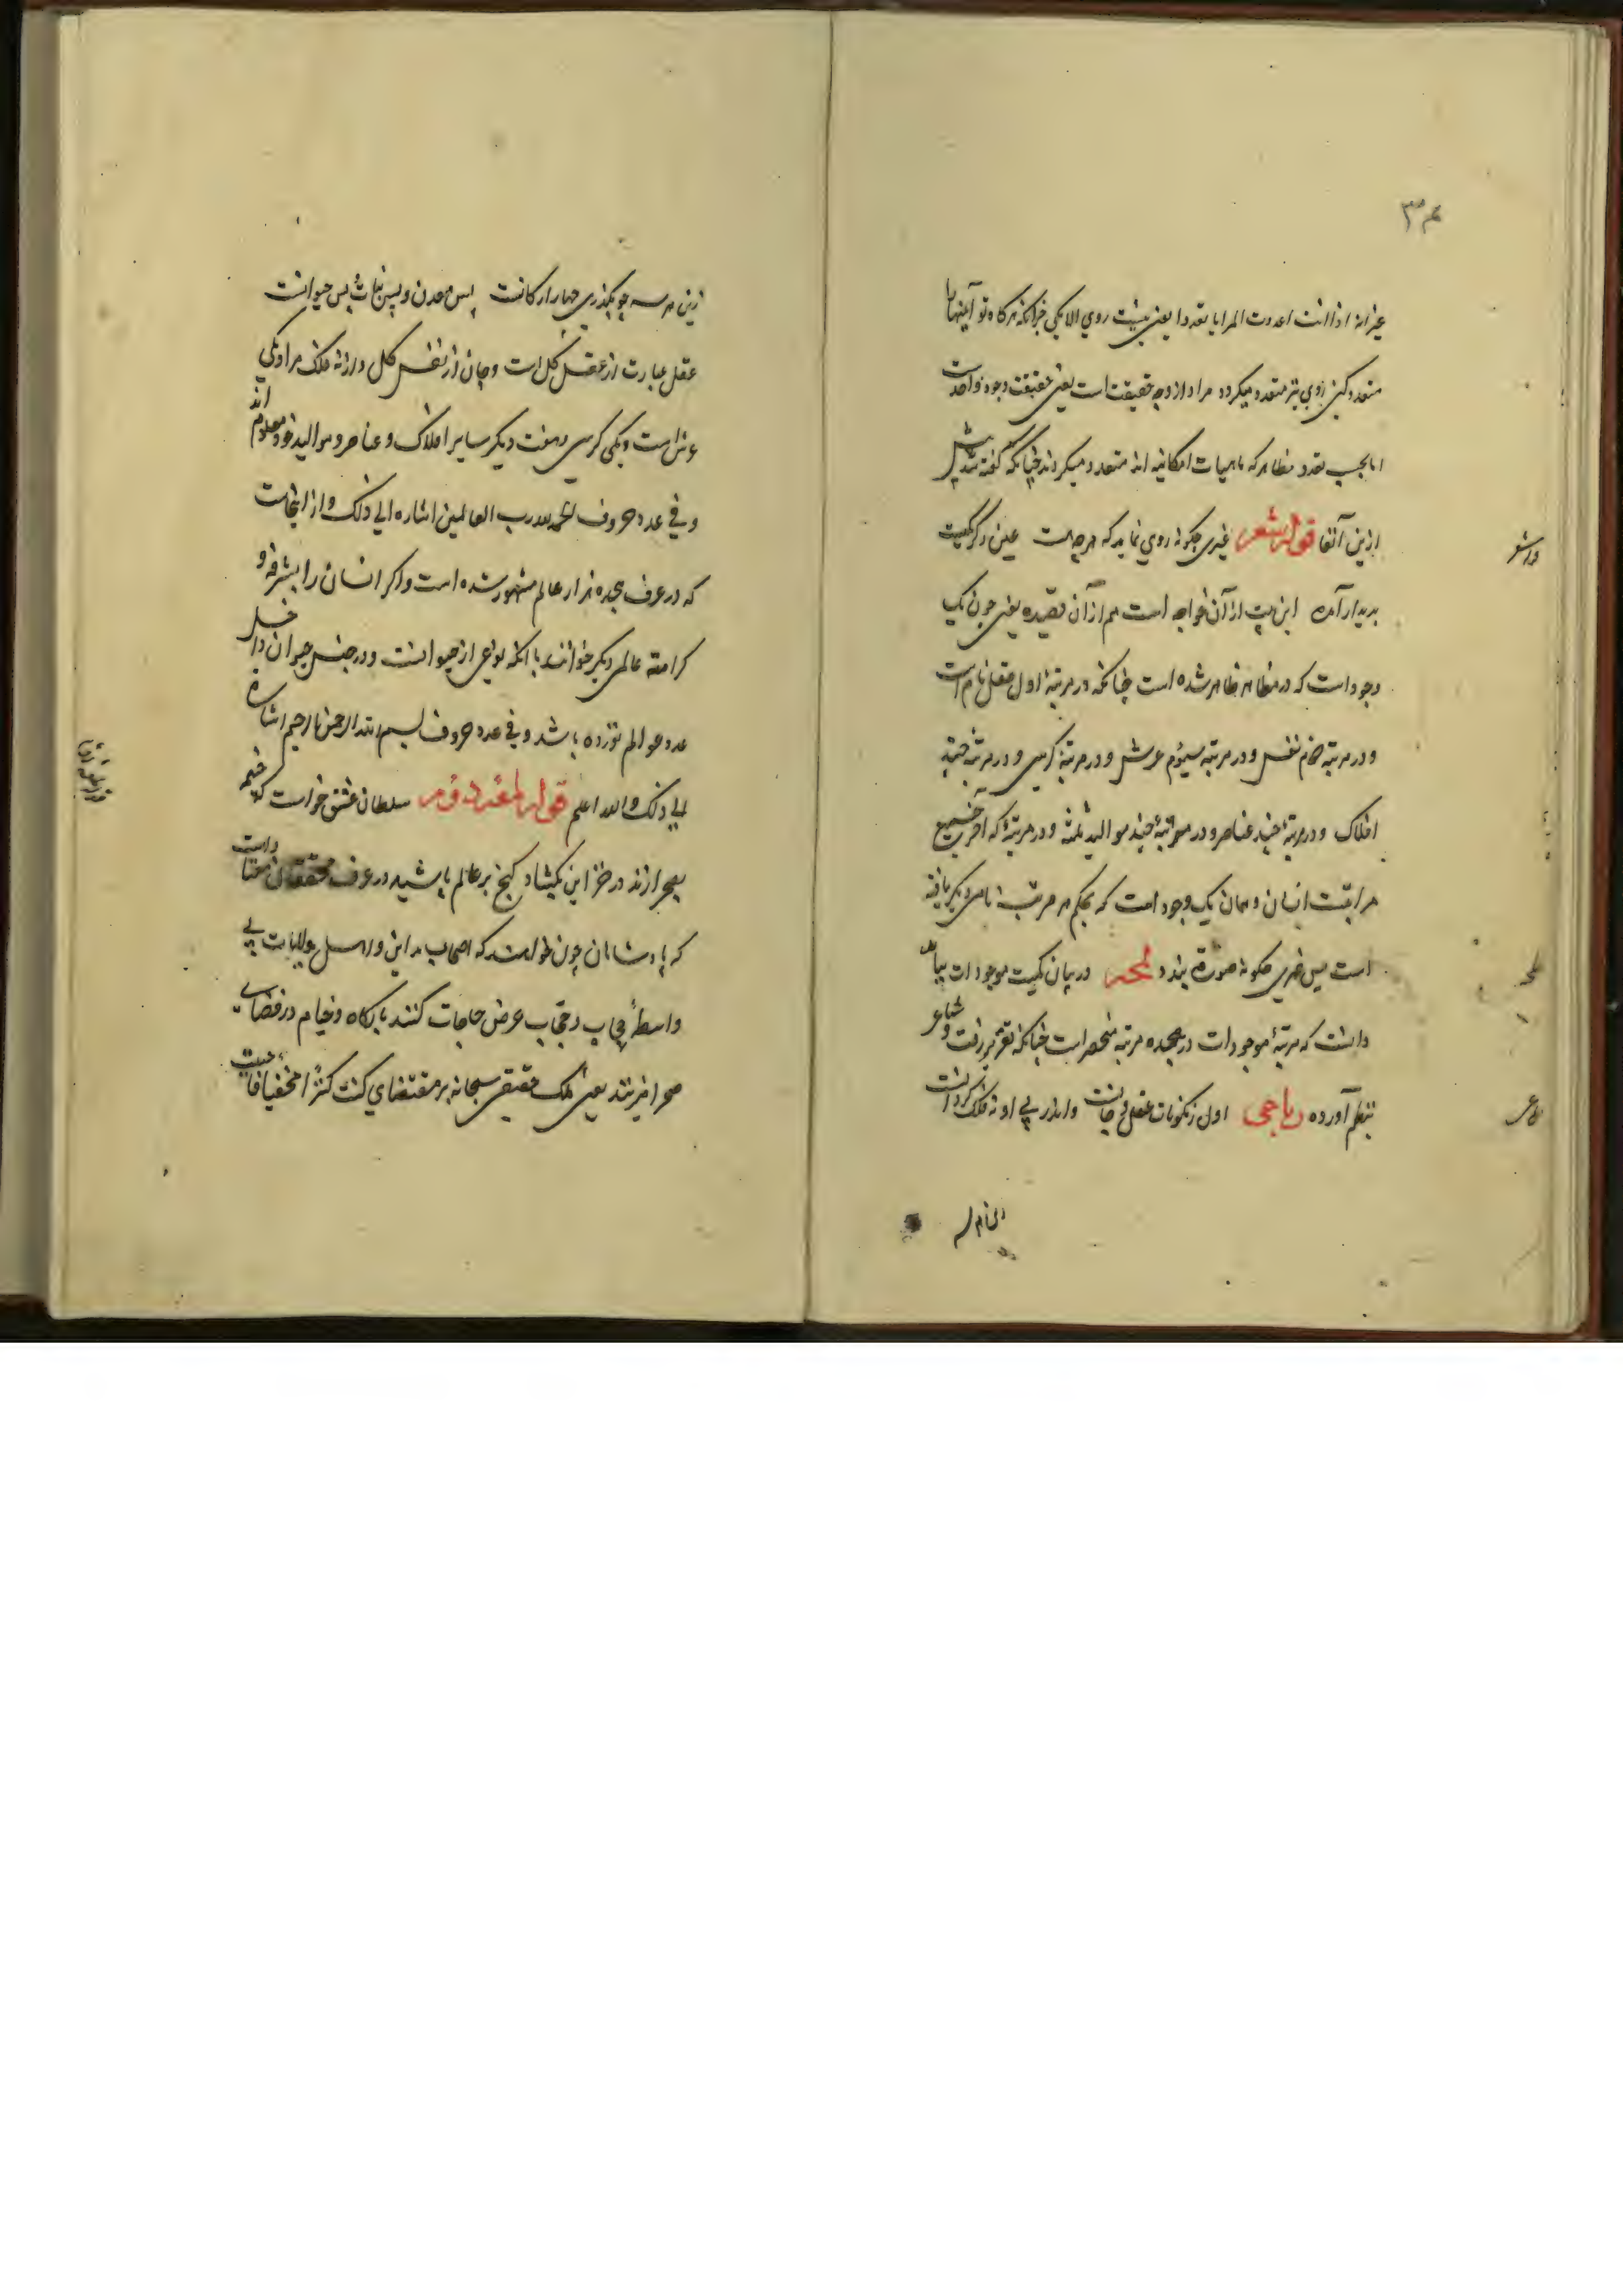 ۳۴
غیر انه اذا انت اعددت المرایا تعددا یعنی نیست روی الا یکی جز آنکه هرگاه تو آینها را
متعدد کنی روی نیز متعدد میگردد مراد از وجه حقیقت است یعنی حقیقت وجود واحدست
اما بحسب تعدد مظاهر که ماهیات امکانیه اند متعدد میگردند چنانکه گفته شد پیش
ازین آنفا قوله شعر غیری چکونه روی نماید که هرچه هست عین دگر یکیست
پدیدار آمده این بیت از آن خواجه است هم از آن قصیده یعنی چون یک
وجود است که در مظاهر ظاهر شده است چنانکه در مرتبهٔ اول عقل نام است
و در مرتبه دوم نفس و در مرتبه سیوم عرش و در مرتبهٔ کرسی و در مرتبهٔ چند
افلاک و در مرتبهٔ چند عناصر و در مرتبهٔ چند موالید ثلثه و در مرتبهٔ که آخر جمیع
مراتبست انسان و همان یک وجود است که بحکم هر مرتبه نامی دیگر یافته
است پس غیری چکونه صورة بندد لمحه در بیان کمیت موجودات بباید
دانست که مرتبهٔ موجودات در هجده مرتبه منحصر است چنانکه تقریر رفت و شاعر
بنظم آورده رباعی اول ز مکونات عقل و جانست واندر پی او نه فلک گردانست
زین هر سه چو بگذری چهار ارکانست پس معدن و پس نبات پس حیوانست
عقل عبارت از عقل کل است و جان از نفس کل و از نه فلک مراد یکی
عرش است و یکی کرسی و هفت دیگر سایر افلاک و عناصر و موالید خود معلوم اند
و فی عدد حروف الحمد لله رب العالمین اشاره الی ذلک و از اینجاست
که در عرف هجده هزار عالم مشهور شده است و اگر انسان را بشرفه و
کرامته عالمی دیگر خوانند با آنکه نوعی از حیوانست و در جنس حیوان داخل
عدد عوالم نوزده باشد و فی عدد حروف بسم الله الرحمن الرحیم اشارة
الی ذلک والله اعلم قوله سلطان عشق خواست که خیمه
بصحرا زند در خزاین بکشاد گنج بر عالم پاشید در عرف محققان معتاد است
که پادشاهان چون خواهند که اصحاب مداین و اهل ولایات بی
واسطهٔ حجاب و حجّاب عرض حاجات کنند بارگاه و خیام در فضای
صحرا زنند یعنی ملک حقیقی سبحانه بر مقتضای کنت کنزا مخفیا فاحببت